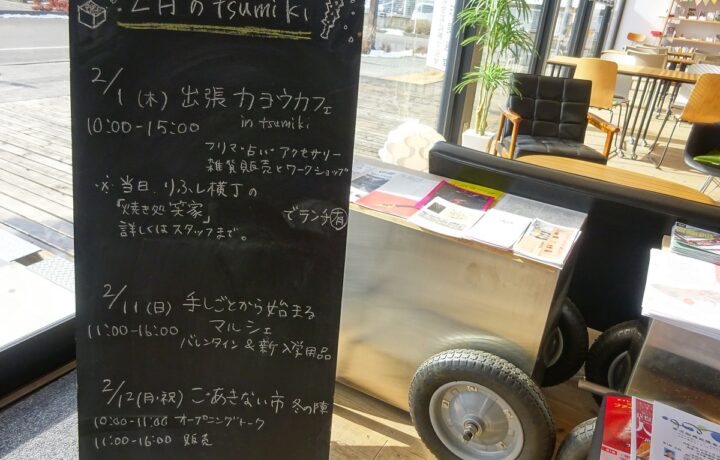 2月のtsumiki
2/1 (木) 出張 カヨウカフェ
in tsumiki
10:00-15:00
フリマ・占い アクセサリー
雑貨販売とワークショップ
※ 当日、りふし横丁の
「焼き処 笑家」
でランチ有
詳しくはスタッフまで。
2/11 (日) 手しごとから始まる
マルシェ
11:00-16:00
バレンタイン & 新入学用品
2/12 (月・祝) ごあきない市 冬の陣
10:00-11:00 オープニングトーク
11:00-16:00 販売